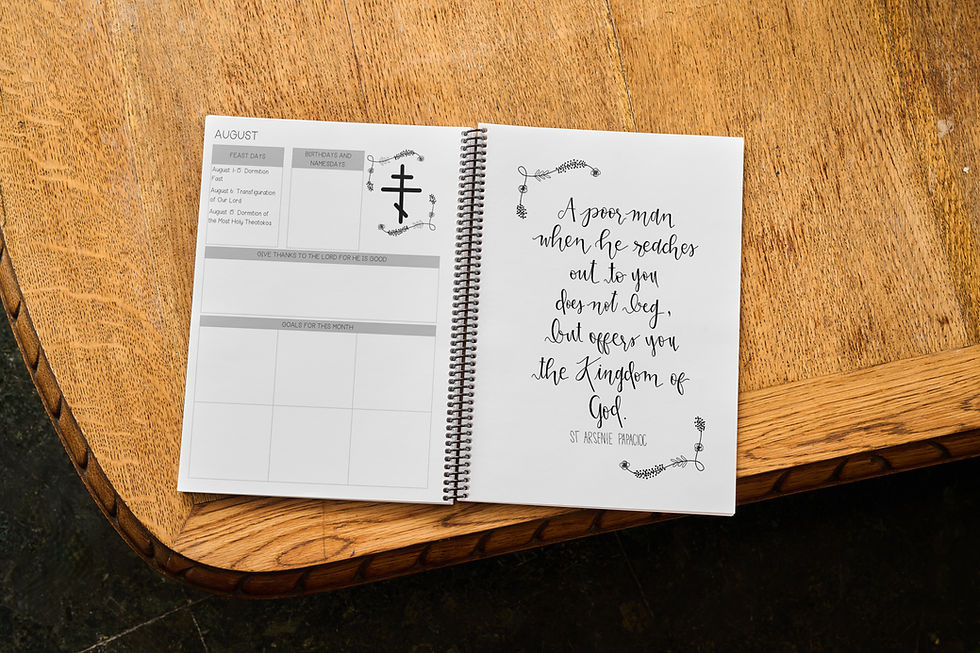 AUGUST
FEAST DAYS
August 1-15: Dormition
Fast
August 6: Transfiguration
of Our Lord
August 15: Dormition of
the Most Holy Theotokos
BIRTHDAYS AND
NAMESDAYS
GIVE THANKS TO THE LORD FOR HE IS GOOD
GOALS FOR THIS MONTH
A poor man
when he reaches
out to you
does not beg,
but offers you
the Kingdom of
God.
ST ARSENIE PAPACIOC